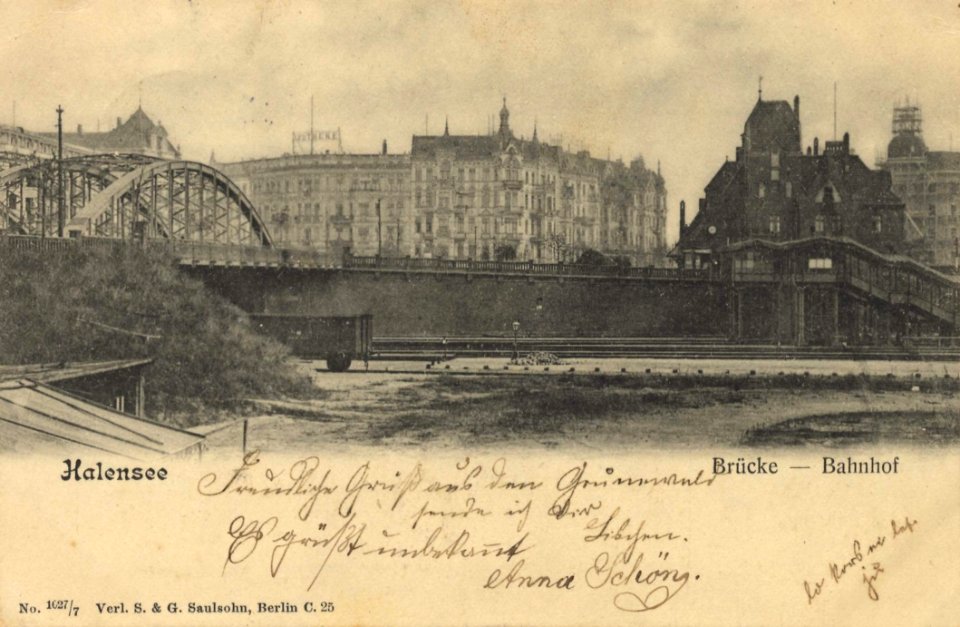 APOTHEKE
Halensee
Brücke — Bahnhof
Freundliche Grüß aus den Grunewald
sende ich Dir
Libchen.
Es grüßt unbekannt
Anna Schön.
No. 1627/7 Verl. S. & G. Saulsohn, Berlin C. 25